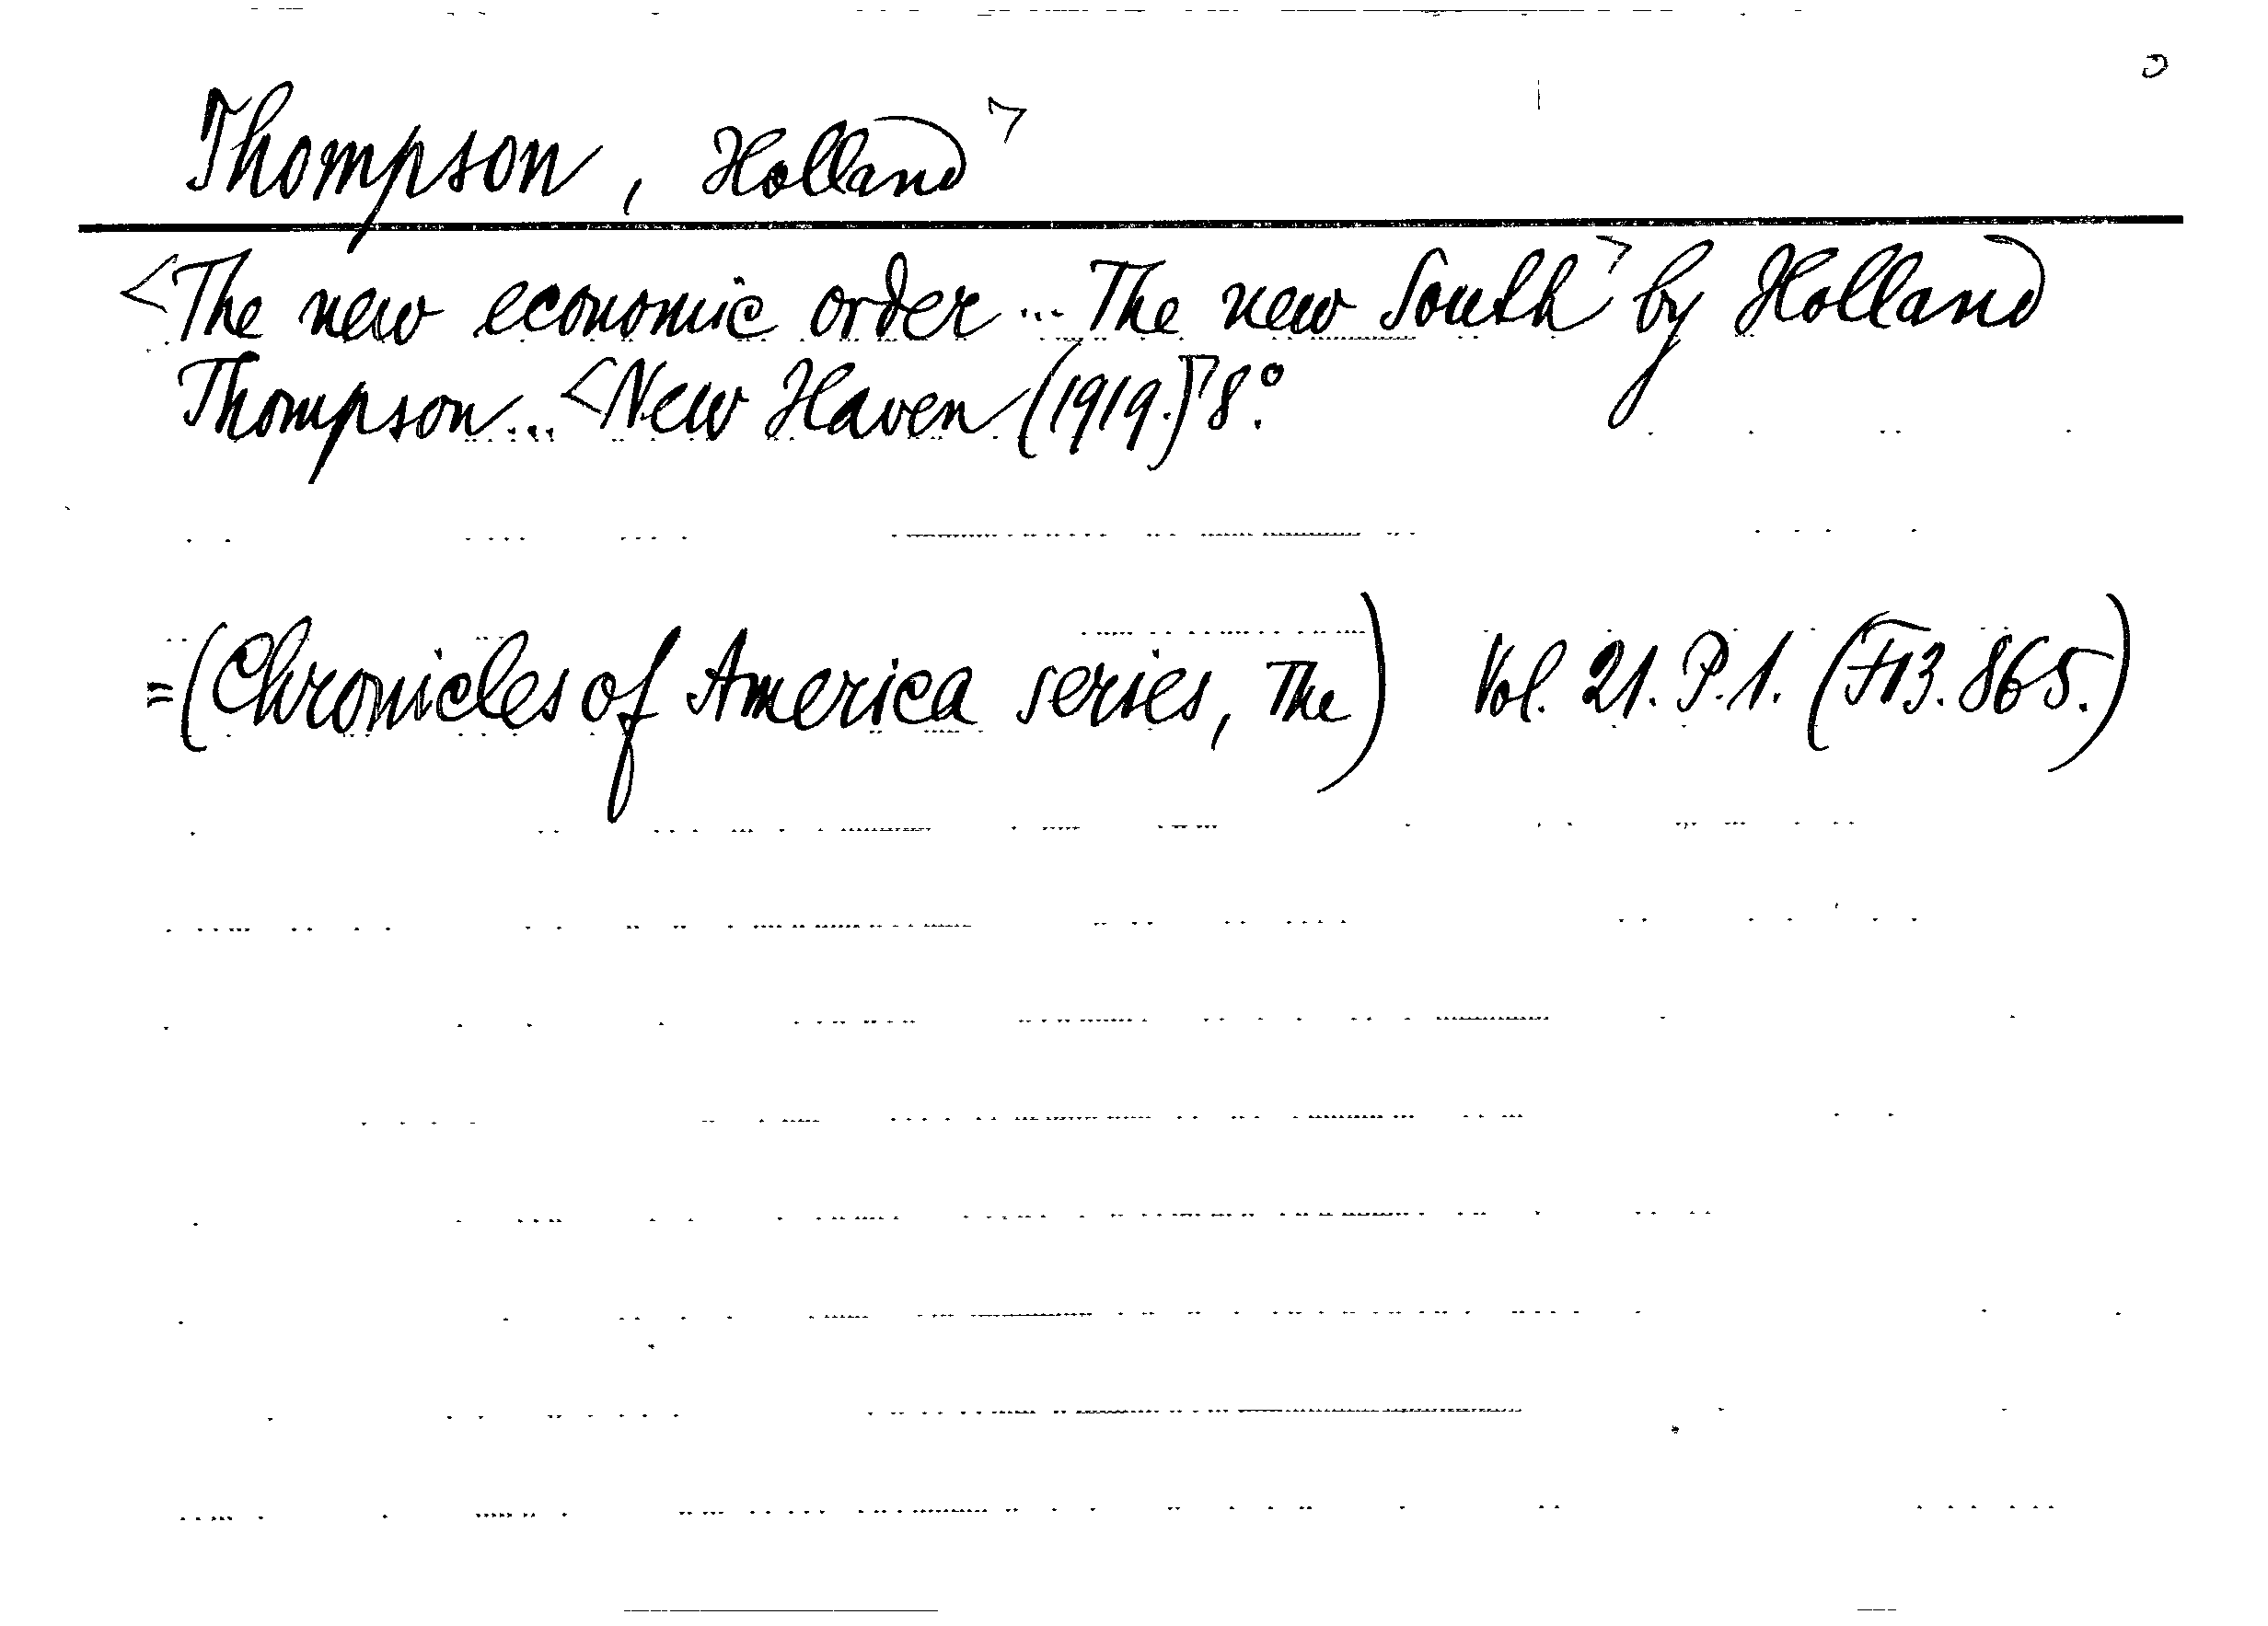 Thompson, Holland>
<The new economic order... The new South> by Holland
Thompson... <New Haven (1919.)> 8°.
=(Chronicles of America series, The) Vol. 21. P. 1. (F13. 865.)